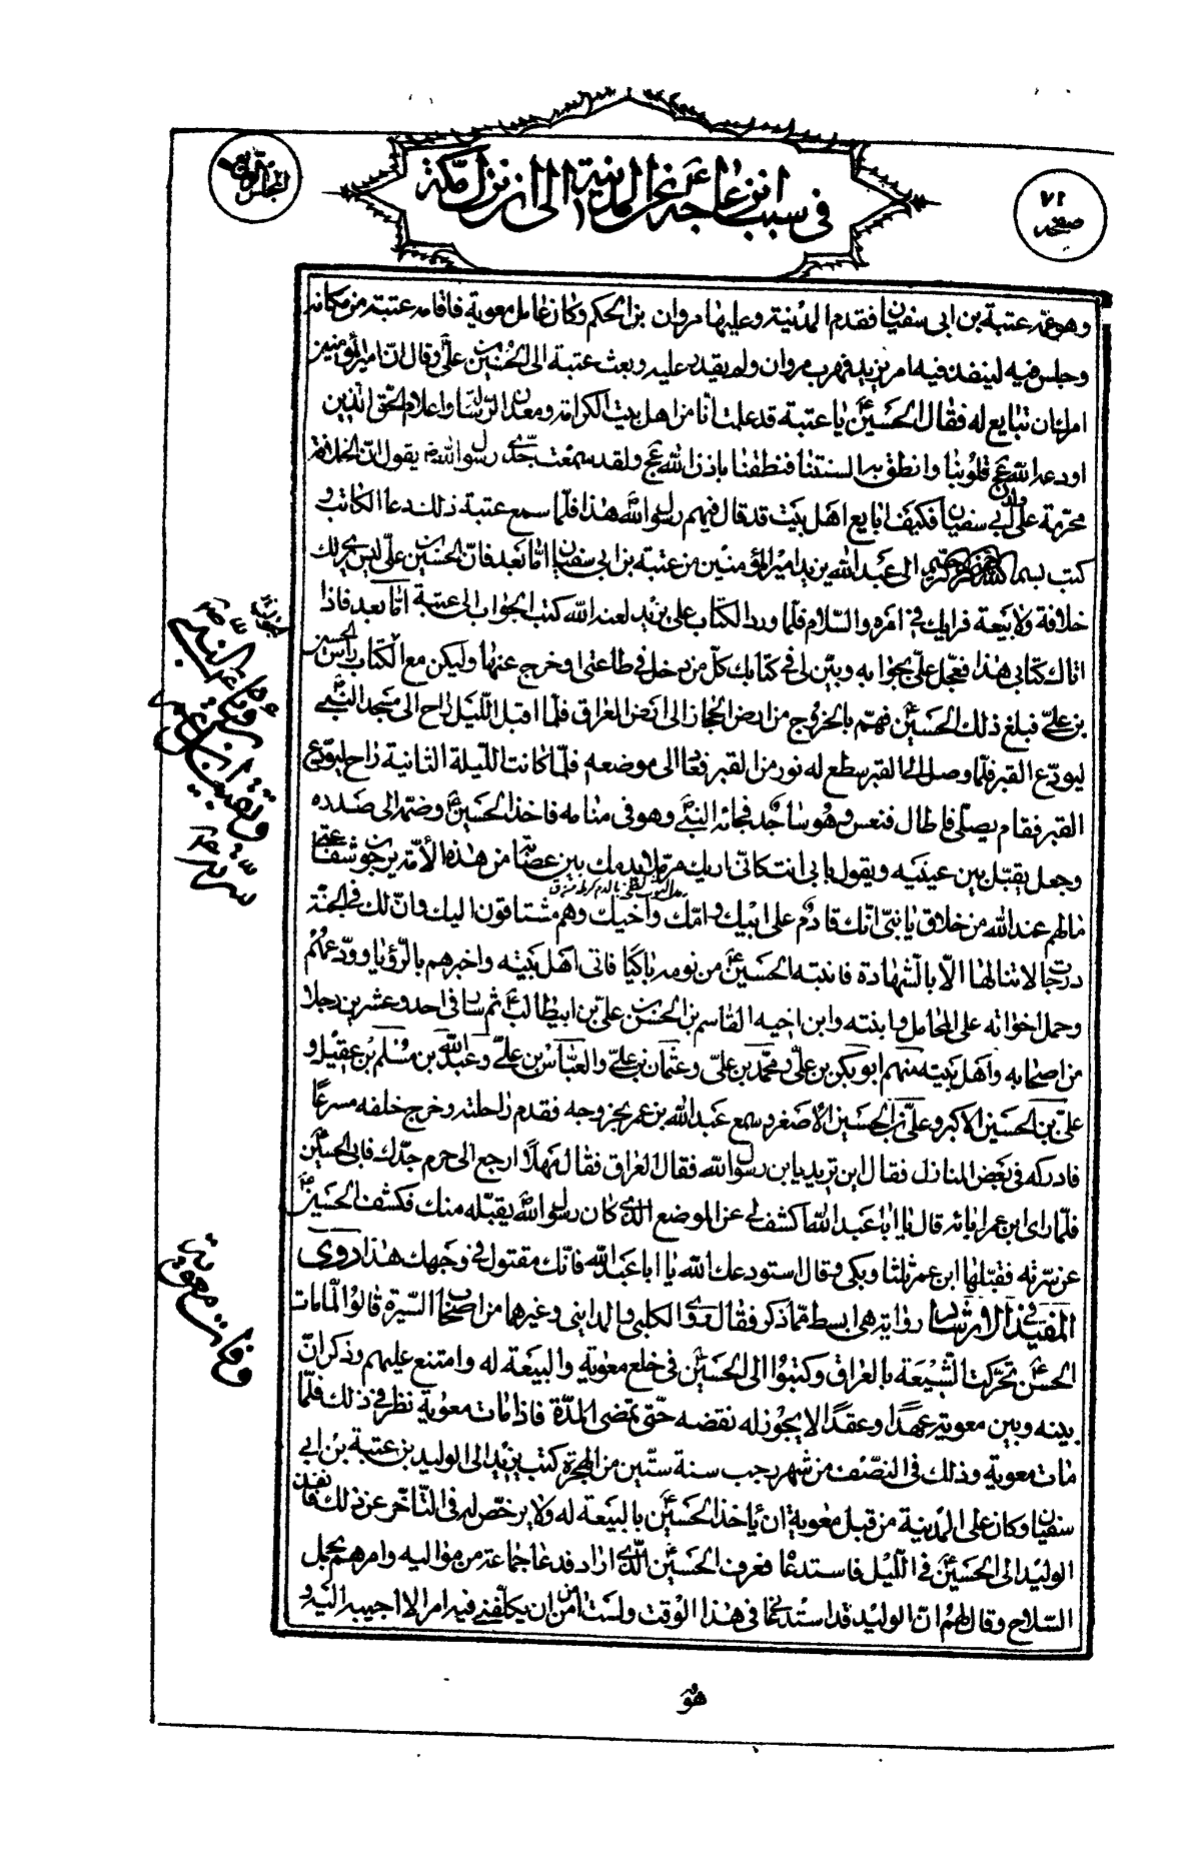 صفحه ٧٢
فى سبب انزعاجه عن المدينة الى ان نزل مكة
المجلس
وهو عمه عتبة بن ابى سفيان فقدم المدينة وعليها مروان بن الحكم وكان عامل معوية فاقامه عتبة من مكانه
وجلس فيه لينفذ فيه امر يزيد فهرب مروان ولم يقدر عليه وبعث عتبة الى الحسين بن علىّ وقال انّ امير المؤمنين
امرك ان تبايع له فقال الحسين ع يا عتبة قد علمت انّا من اهل بيت الكرامة ومعدن الرّسالة واعلام الحق الّذين
اودعه الله عج قلوبنا وانطق به السنتنا فنطقنا باذن الله عج ولقد سمعت جدّى رسول الله ص يقول انّ الخلافة
محرّمة على ولد ابى سفيان فكيف ابايع اهل بيت قد قال فيهم رسول الله هذا فلمّا سمع عتبة ذلك دعا الكاتب و
كتب بسم الله الرحمن الرحيم الى عبد الله يزيد امير المؤمنين من عتبة بن ابى سفيان امّا بعد فانّ الحسين بن علىّ ليس يرى لك
خلافة ولا بيعة فرايك فى امره والسّلام فلمّا ورد الكتاب على يزيد لعنه الله كتب الجواب الى عتبة امّا بعد فاذا
اتاك كتابى هذا فعجّل علىّ بجوابه وبيّن لى فى كتابك كلّ من دخل فى طاعتى او خرج عنها وليكن مع الكتاب راس الحسين
بن علىّ فبلغ ذلك الحسين ع فهمّ بالخروج من ارض الحجاز الى ارض العراق فلمّا اقبل اللّيل راح الى مسجد النّبى ص
ليودّع القبر فلمّا وصل الى القبر سطع له نور من القبر فعاد الى موضعه فلمّا كانت اللّيلة الثانية راح ليودّع
القبر فقام يصلّى فاطال فنعس وهو ساجد فجائه النّبى ص وهو فى منامه فاخذ الحسين ع وضمّه الى صدره
وجعل يقبّل بين عينيه ويقول بابى انت كانّى اريك مرمّلا بدمك بين عصابة من هذه الأمّة يرجون شفاعتى
ما لهم عند الله من خلاق يا بنىّ انّك قادم على ابيك وامّك واخيك وهم مشتاقون اليك وانّ لك فى الجنّة
درجات لا تنالها الّا بالشّهادة فانتبه الحسين ع من نومه باكيا فاتى اهل بيته واخبرهم بالرّؤيا وودّعهم
وحمل اخواته على المحامل وابنته وابن اخيه القاسم بن الحسن بن علىّ بن ابيطالب ع ثم سار فى احد وعشرين رجلا
من اصحابه واهل بيته منهم ابو بكر بن علىّ ومحمّد بن علىّ وعثمان بن علىّ والعبّاس بن علىّ وعبد الله بن مسلم بن عقيل و
علىّ بن الحسين الاكبر وعلىّ بن الحسين الأصغر وسمع عبد الله بن عمر بخروجه فقدم راحلته وخرج خلفه مسرعا
فادركه فى بعض المنازل فقال اين تريد يابن رسول الله فقال العراق فقال مهلا ارجع الى حرم جدّك فابى الحسين
فلمّا راى ابن عمر ابائه قال يا ابا عبد الله اكشف لى عن الموضع الّذى كان رسول الله يقبّله منك فكشف الحسين ع
عن سرّته فقبّلها ابن عمر ثلثا وبكى وقال استودعك الله يا ابا عبد الله فانّك مقتول فى وجهك هذا وروى
المفيد فى الارشاد رواية هى ابسط ممّا ذكر فقال روى الكلبى والمداينى وغيرهما من اصحاب السّيرة قالوا لمّا مات
الحسن ع تحرّكت الشّيعة بالعراق وكتبوا الى الحسين ع فى خلع معوية والبيعة له وامتنع عليهم وذكر انّ
بينه وبين معوية عهدا وعقدا لا يجوز له نقضه حتّى تمضى المدّة فاذا مات معوية نظر فى ذلك فلمّا
مات معوية وذلك فى النّصف من شهر رجب سنة ستّين من الهجرة كتب يزيد الى الوليد بن عتبة بن ابى
سفيان وكان على المدينة من قبل معوية ان ياخذ الحسين ع بالبيعة له ولا يرخّص له فى التّأخّر عن ذلك فانفذ
الوليد الى الحسين ع فى اللّيل فاستدعاه فعرف الحسين ع الّذى اراد فدعا جماعة من مواليه وامرهم بحمل
السّلاح وقال لهم انّ الوليد قد استدعانى فى هذا الوقت ولست امن ان يكلّفنى فيه امرا لا اجيبه اليه و
وفات معوية
هو